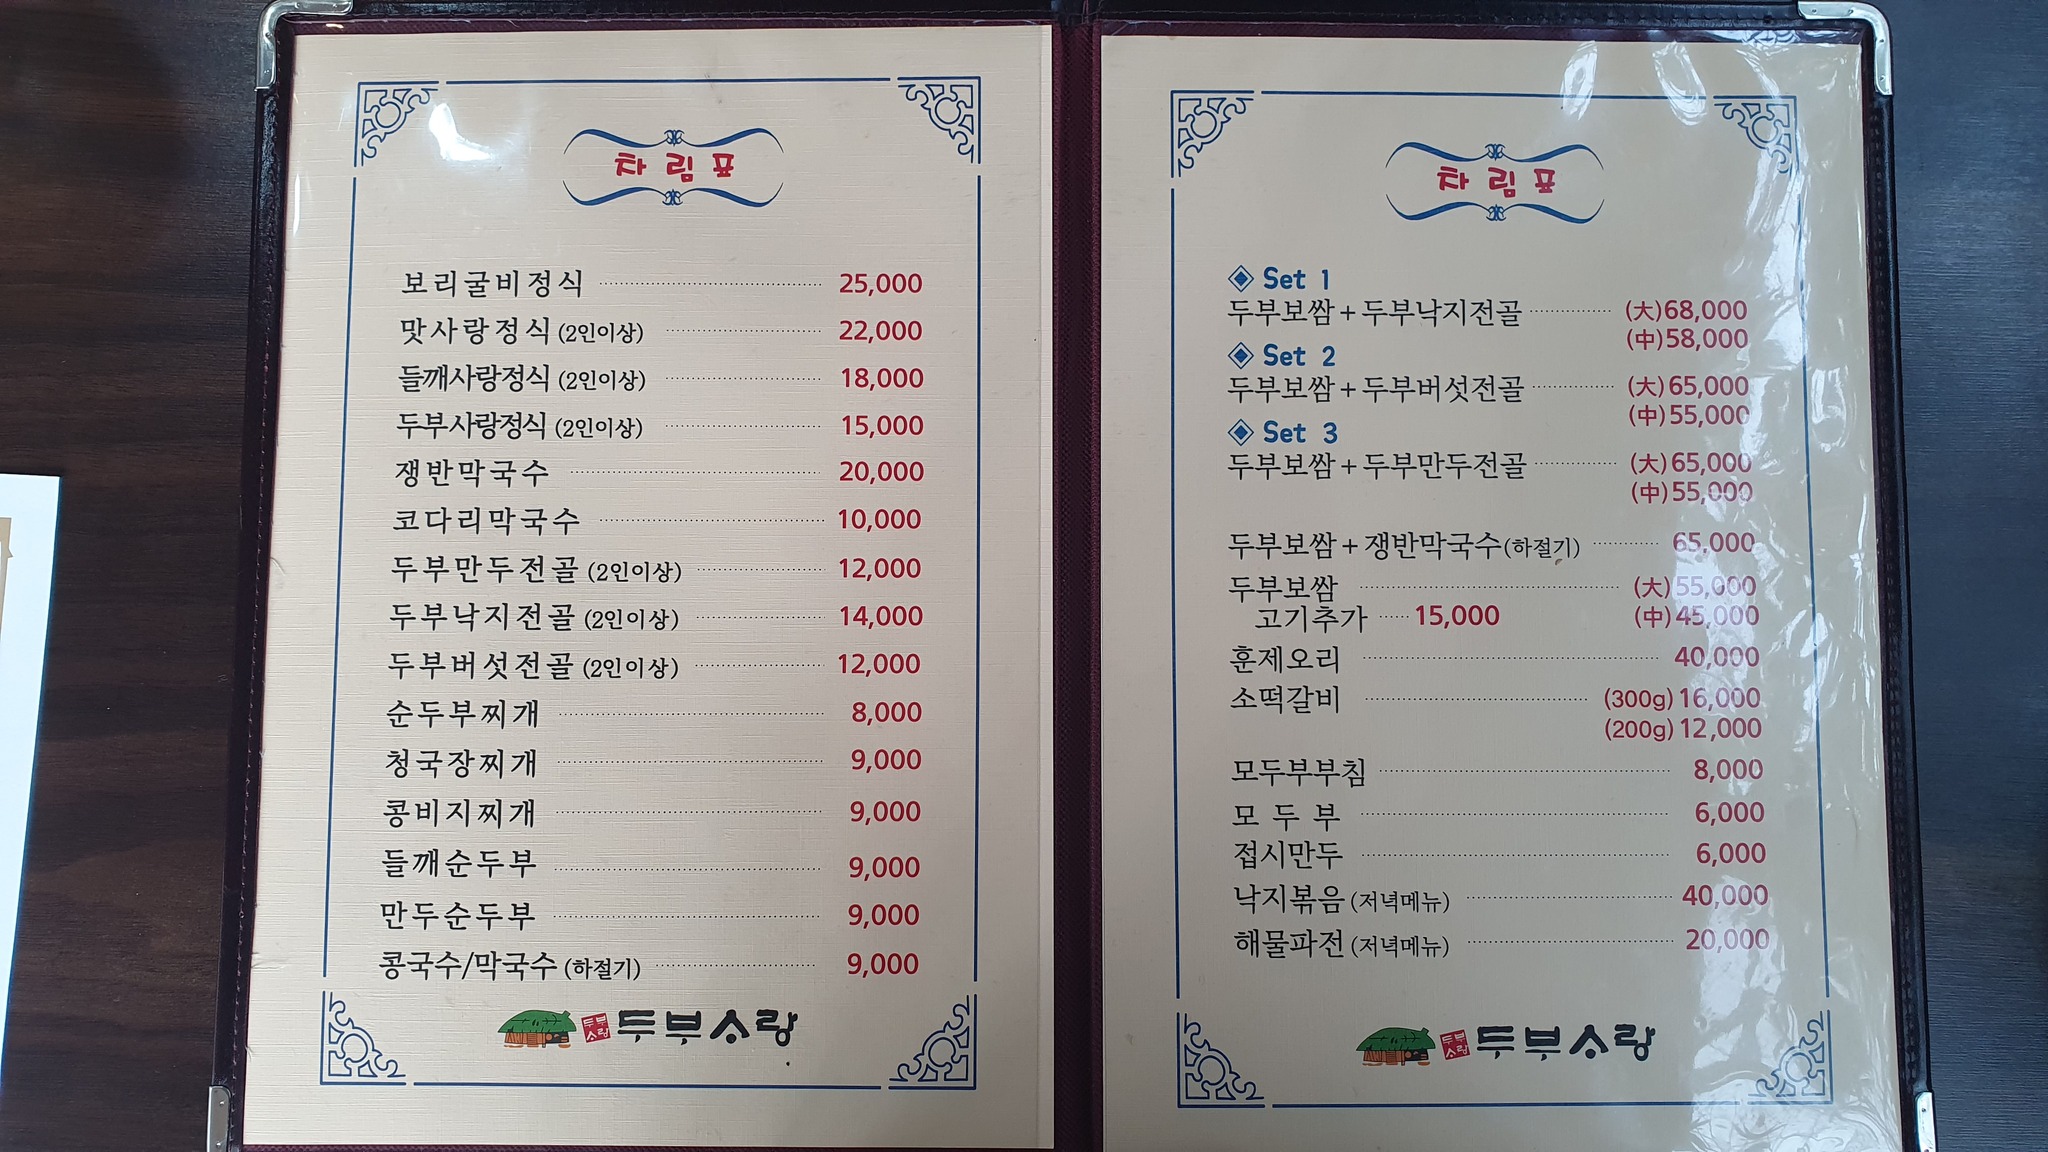 차림표
보리굴비정식 25,000
맛사랑정식 (2인이상) 22,000
들깨사랑정식 (2인이상) 18,000
두부사랑정식 (2인이상) 15,000
쟁반막국수 20,000
코다리막국수 10,000
두부만두전골 (2인이상) 12,000
두부낙지전골 (2인이상) 14,000
두부버섯전골 (2인이상) 12,000
순두부찌개 8,000
청국장찌개 9,000
콩비지찌개 9,000
들깨순두부 9,000
만두순두부 9,000
콩국수/막국수 (하절기) 9,000
두부사랑 두부사랑
차림표
Set 1
두부보쌈+두부낙지전골 (大)68,000
(中)58,000
Set 2
두부보쌈+두부버섯전골 (大)65,000
(中)55,000
Set 3
두부보쌈+두부만두전골 (大)65,000
(中)55,000
두부보쌈+쟁반막국수(하절기) 65,000
두부보쌈 (大)55,000
고기추가 15,000 (中)45,000
훈제오리 40,000
소떡갈비 (300g)16,000
(200g)12,000
모두부부침 8,000
모두부 6,000
접시만두 6,000
낙지볶음(저녁메뉴) 40,000
해물파전(저녁메뉴) 20,000
두부사랑 두부사랑